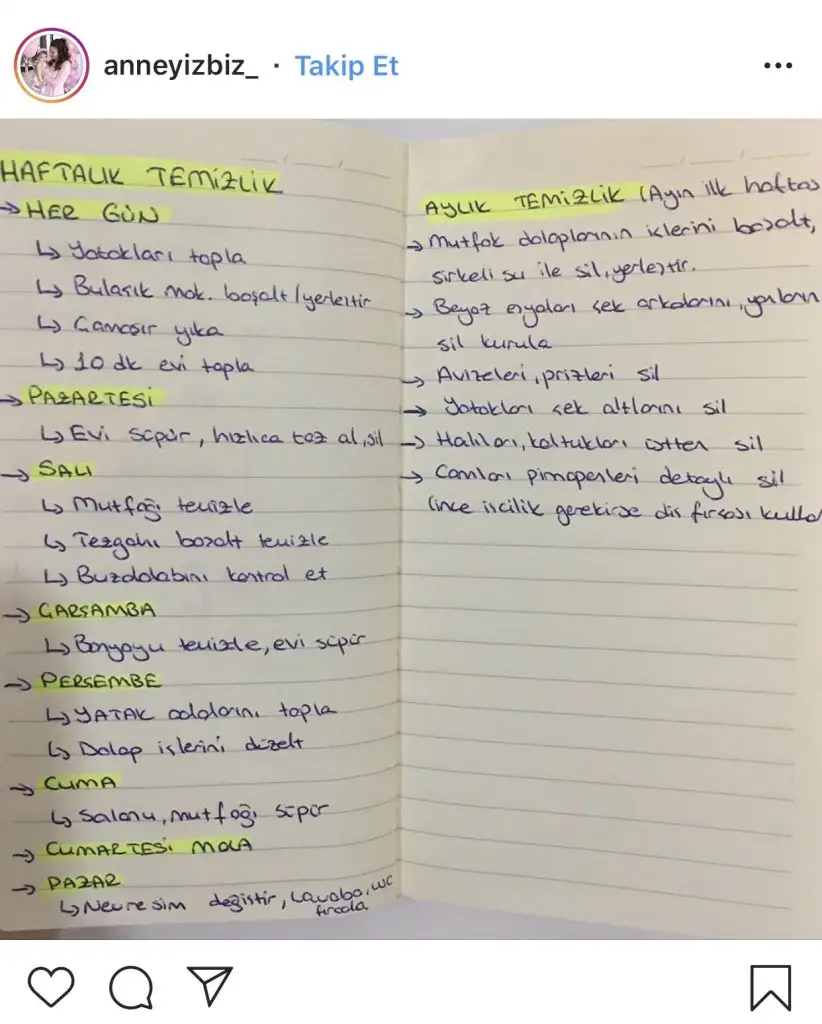 anneyizbiz_ · Takip Et
HAFTALIK TEMİZLİK
→ HER GÜN
↳ Yatakları topla
↳ Bulaşık mak. boşalt/yerleştir
↳ Çamaşır yıka
↳ 10 dk evi topla
→ PAZARTESİ
↳ Evi süpür, hızlıca toz al, sil
→ SALI
↳ Mutfağı temizle
↳ Tezgahı boşalt temizle
↳ Buzdolabını kontrol et
→ ÇARŞAMBA
↳ Banyoyu temizle, evi süpür
→ PERŞEMBE
↳ YATAK odalarını topla
↳ Dolap içlerini düzelt
→ CUMA
↳ Salonu, mutfağı süpür
→ CUMARTESİ MOLA
→ PAZAR
↳ Nevresim değiştir, Lavabo, wc
fırçala
AYLIK TEMİZLİK (Ayın ilk haftası
→ Mutfak dolaplarının içlerini boşalt,
sirkeli su ile sil, yerleştir.
→ Beyaz eşyaları çek arkalarını, yanlarını
sil kurula
→ Avizeleri, prizleri sil
→ Yatakları çek altlarını sil
→ Halıları, koltukları üstten sil
→ Camları pimapenleri detaylı sil
(ince işçilik gerekirse diş fırçası kulla